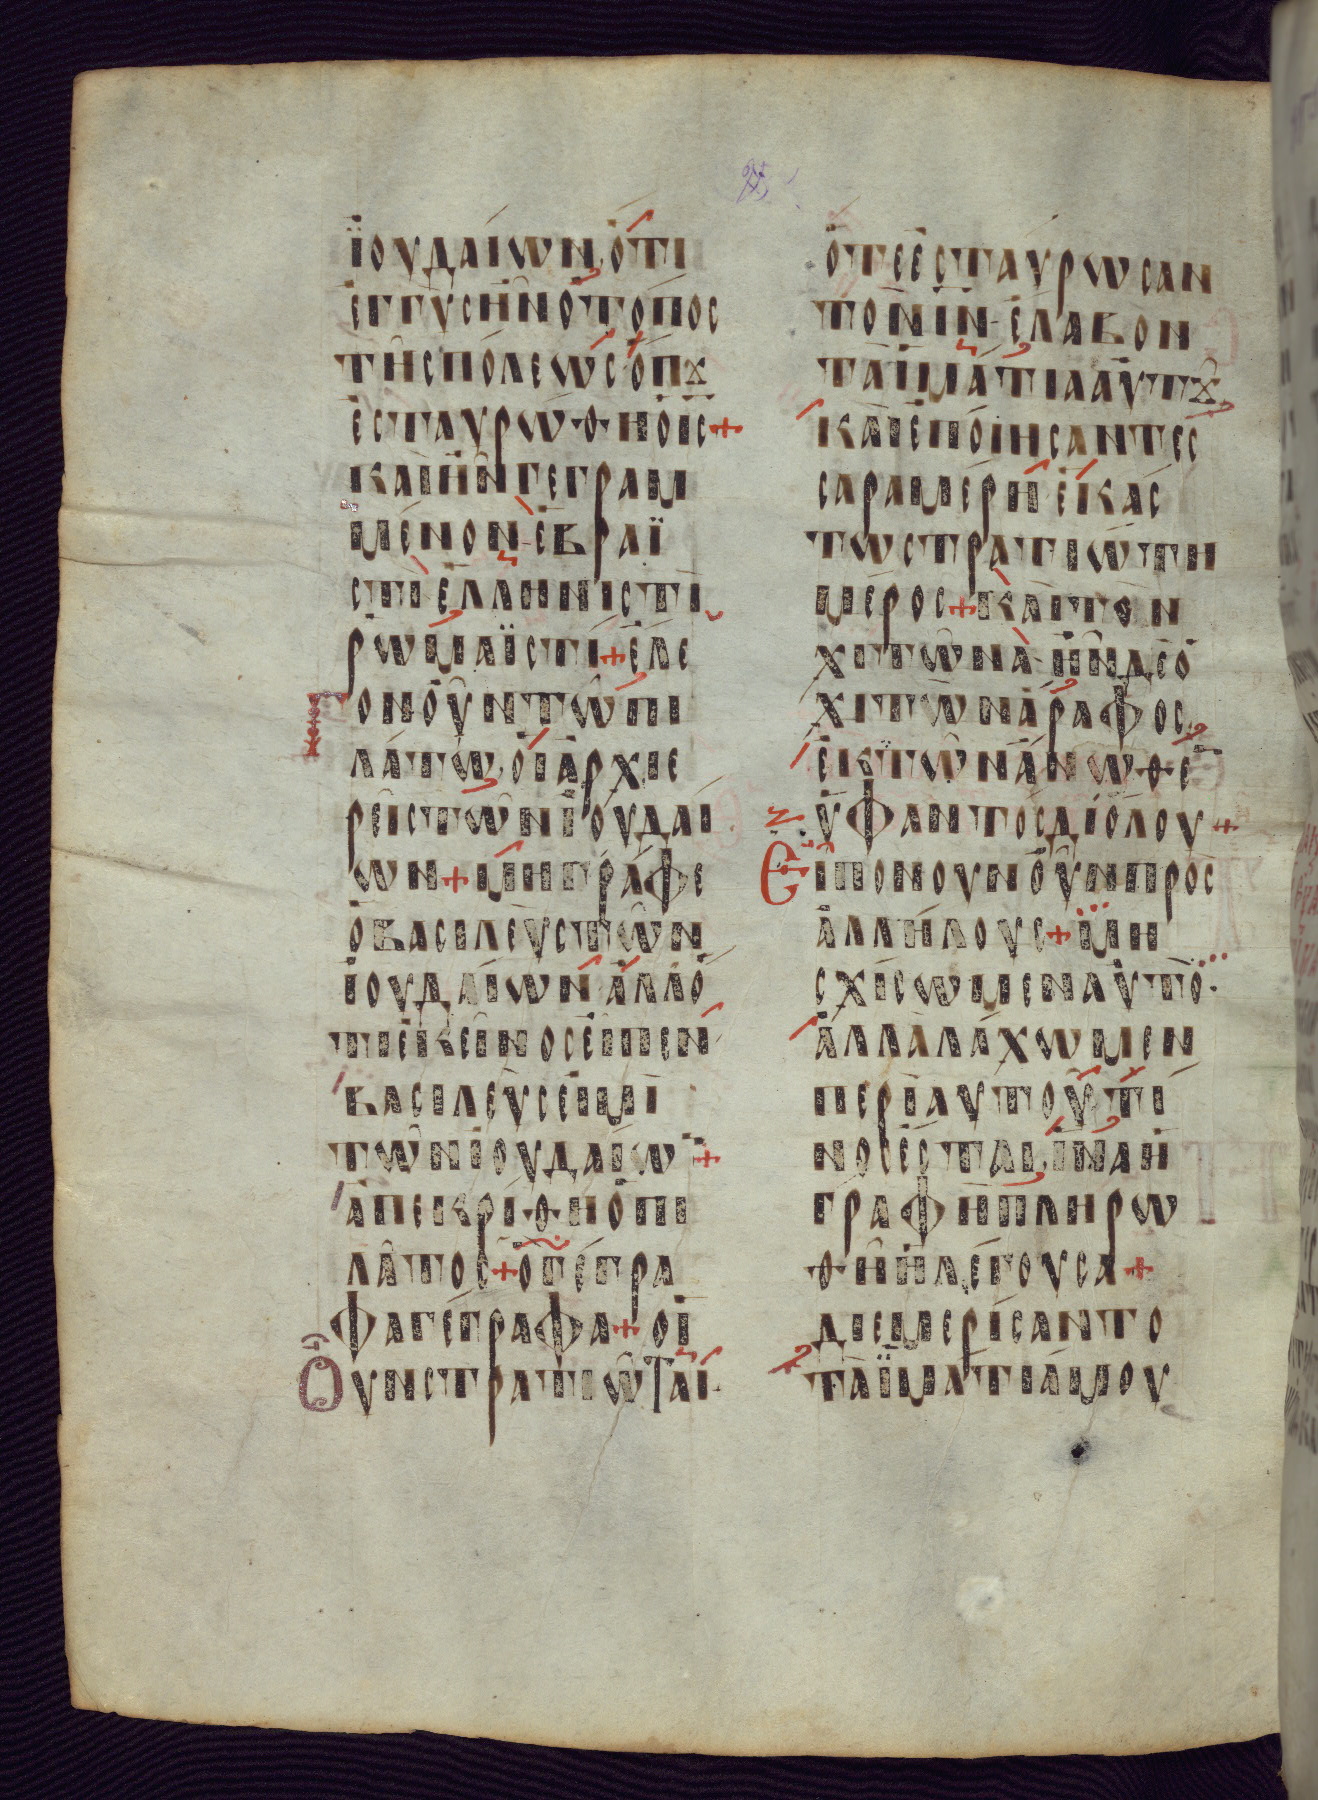 ἰουδαίων, ὅτι
ἐγγὺς ἦν ὁ τόπος
τῆς πόλεως ὅπȣ
ἐσταυρώθη ὁ ι̅ς̅ +
καὶ ἦν γεγραμ
μένον· ἑβραϊ
στὶ ἑλληνιστὶ
ῥωμαϊστί + ἔλε
γον οὖν τῷ πι
λάτω, οἱ ἀρχιε
ρεῖς τῶν ἰουδαί
ων + μὴ γράφε
ὁ βασιλεὺς τῶν
ἰουδαίων ἀλλ ὅ
τι ἐκεῖνος εἶπεν
βασιλεύς εἰμι
τῶν ἰουδαίω̅ +
ἀπεκρίθη ὁ πι
λᾶτος + ὃ γέγρα
φα γέγραφα + οἱ
Οὖν στρατιῶται
ὅτε ἐσταύρωσαν
τὸν ι̅ν̅· ἔλαβον
τὰ ἱμάτια αὐτȣ͂
καὶ ἐποίησαντες
σαρα μέρη ἑκάσ
τω στρατιώτη
μέρος + καὶ τὸν
χιτῶνα· ἦν δὲ ὁ
χιτὼν ἄραφος
ἐκ τῶν ἄνωθε̅
ὑφαντὸς δι ὅλου +
Εἶπον ουν οὖν πρὸς
ἀλλήλους + μὴ
σχίσωμεν αὐτό·
ἀλλὰ λάχωμεν
περὶ αὐτοῦ, τί
νος ἔσται, ἵνα ἡ
γραφὴ πληρω
θῆ ἡ λέγουσα +
διεμερίσαντο
τὰ ἱμάτιά μου